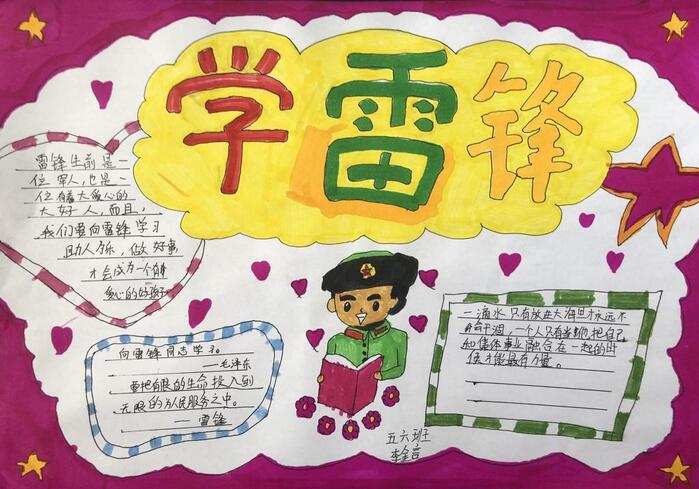 学雷锋
雷锋生前是一
位军人,也是一
位有着大爱心的
大好人,而且,
我们要向雷锋学习
助人为乐,做好事
才会成为一个有
爱心的好孩子
向雷锋同志学习。
——毛泽东
要把有限的生命投入到
无限的为民服务之中。
——雷锋
一滴水只有放进大海里才永远不
会干涸,一个人只有当他把自己
和集体事业融合在一起的时
候才能最有力量。
五六班
李金